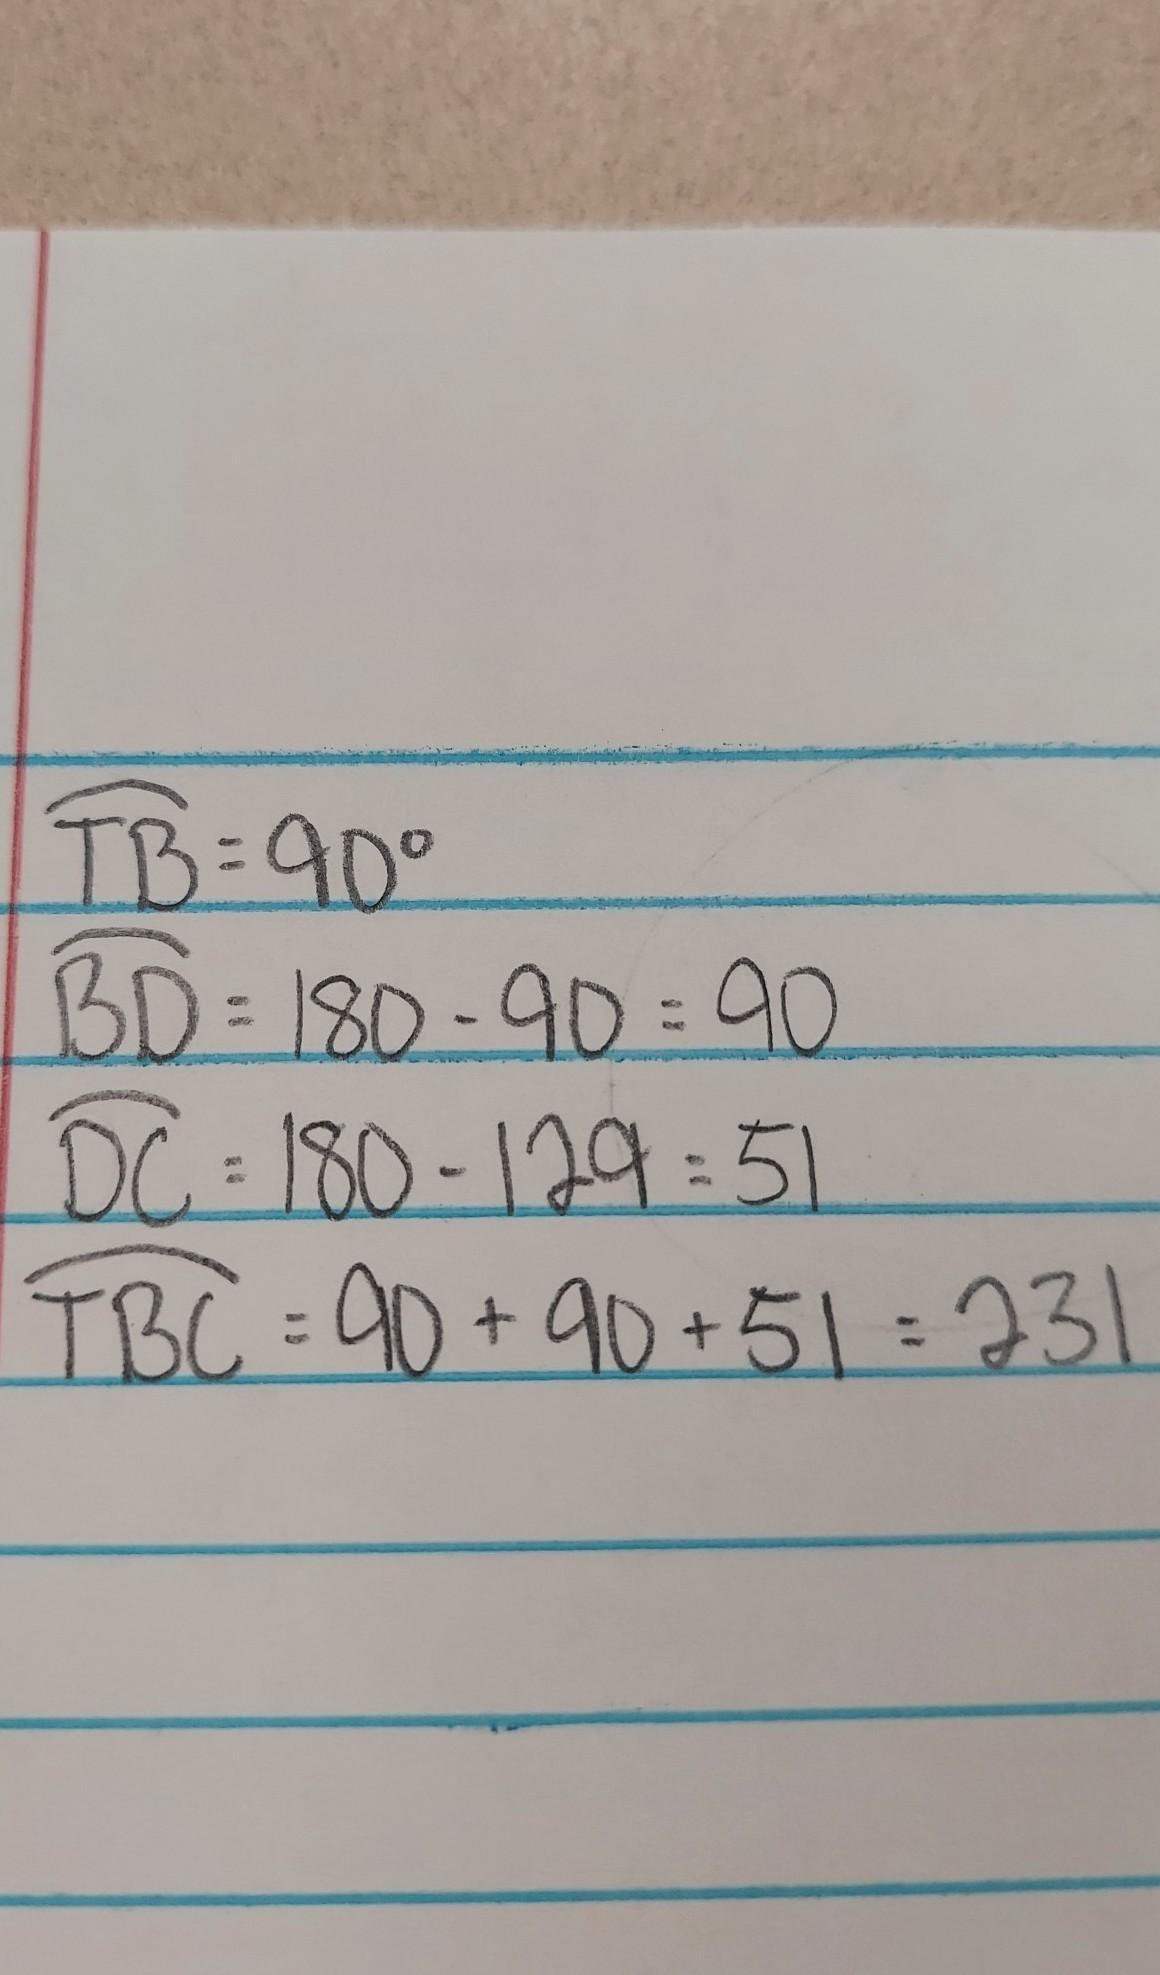 T͡B = 90°
B͡D = 180 - 90 = 90
D͡C = 180 - 129 = 51
T͡BC = 90 + 90 + 51 = 231